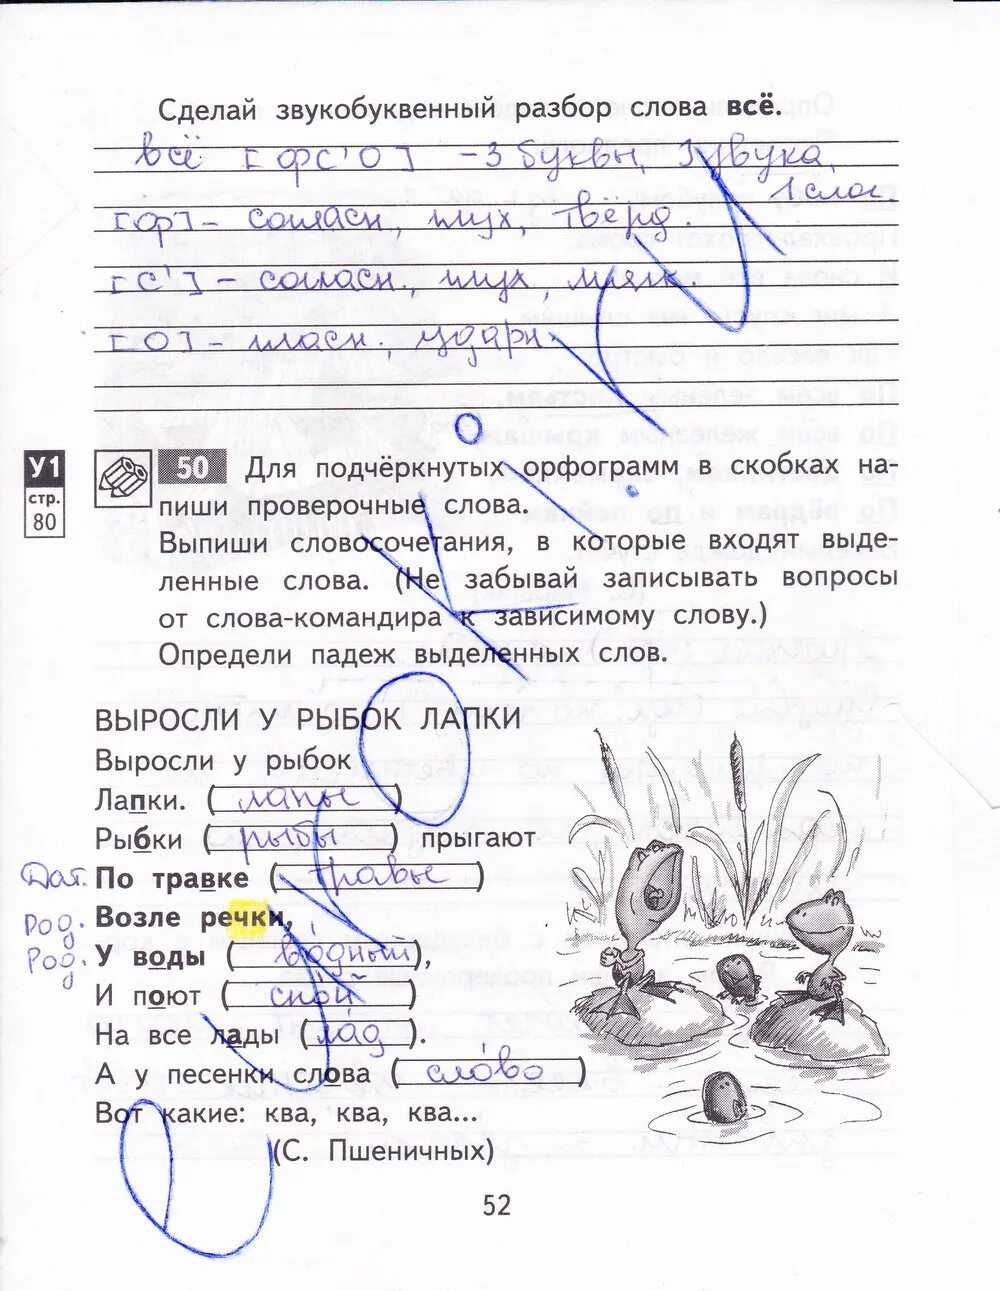 Сделай звукобуквенный разбор слова всё.
всё [фс'о] – 3 буквы, 3 звука,
1 слог
[ф] – согласн., глух, твёрд
[с'] – согласн., глух, мягк.
[о] – гласн. ударн.
У1
стр.
80
50 Для подчёркнутых орфограмм в скобках на-
пиши проверочные слова.
Выпиши словосочетания, в которые входят выде-
ленные слова. (Не забывай записывать вопросы
от слова-командира к зависимому слову.)
Определи падеж выделенных слов.
ВЫРОСЛИ У РЫБОК ЛАПКИ
Выросли у рыбок
Лапки. (лапы)
Рыбки (рыбы) прыгают
Дат. По травке (травы)
Род. Возле речки,
Род. У воды (водный),
И поют (спой)
На все лады (лад).
А у песенки слова (слово)
Вот какие: ква, ква, ква...
(С. Пшеничных)
52